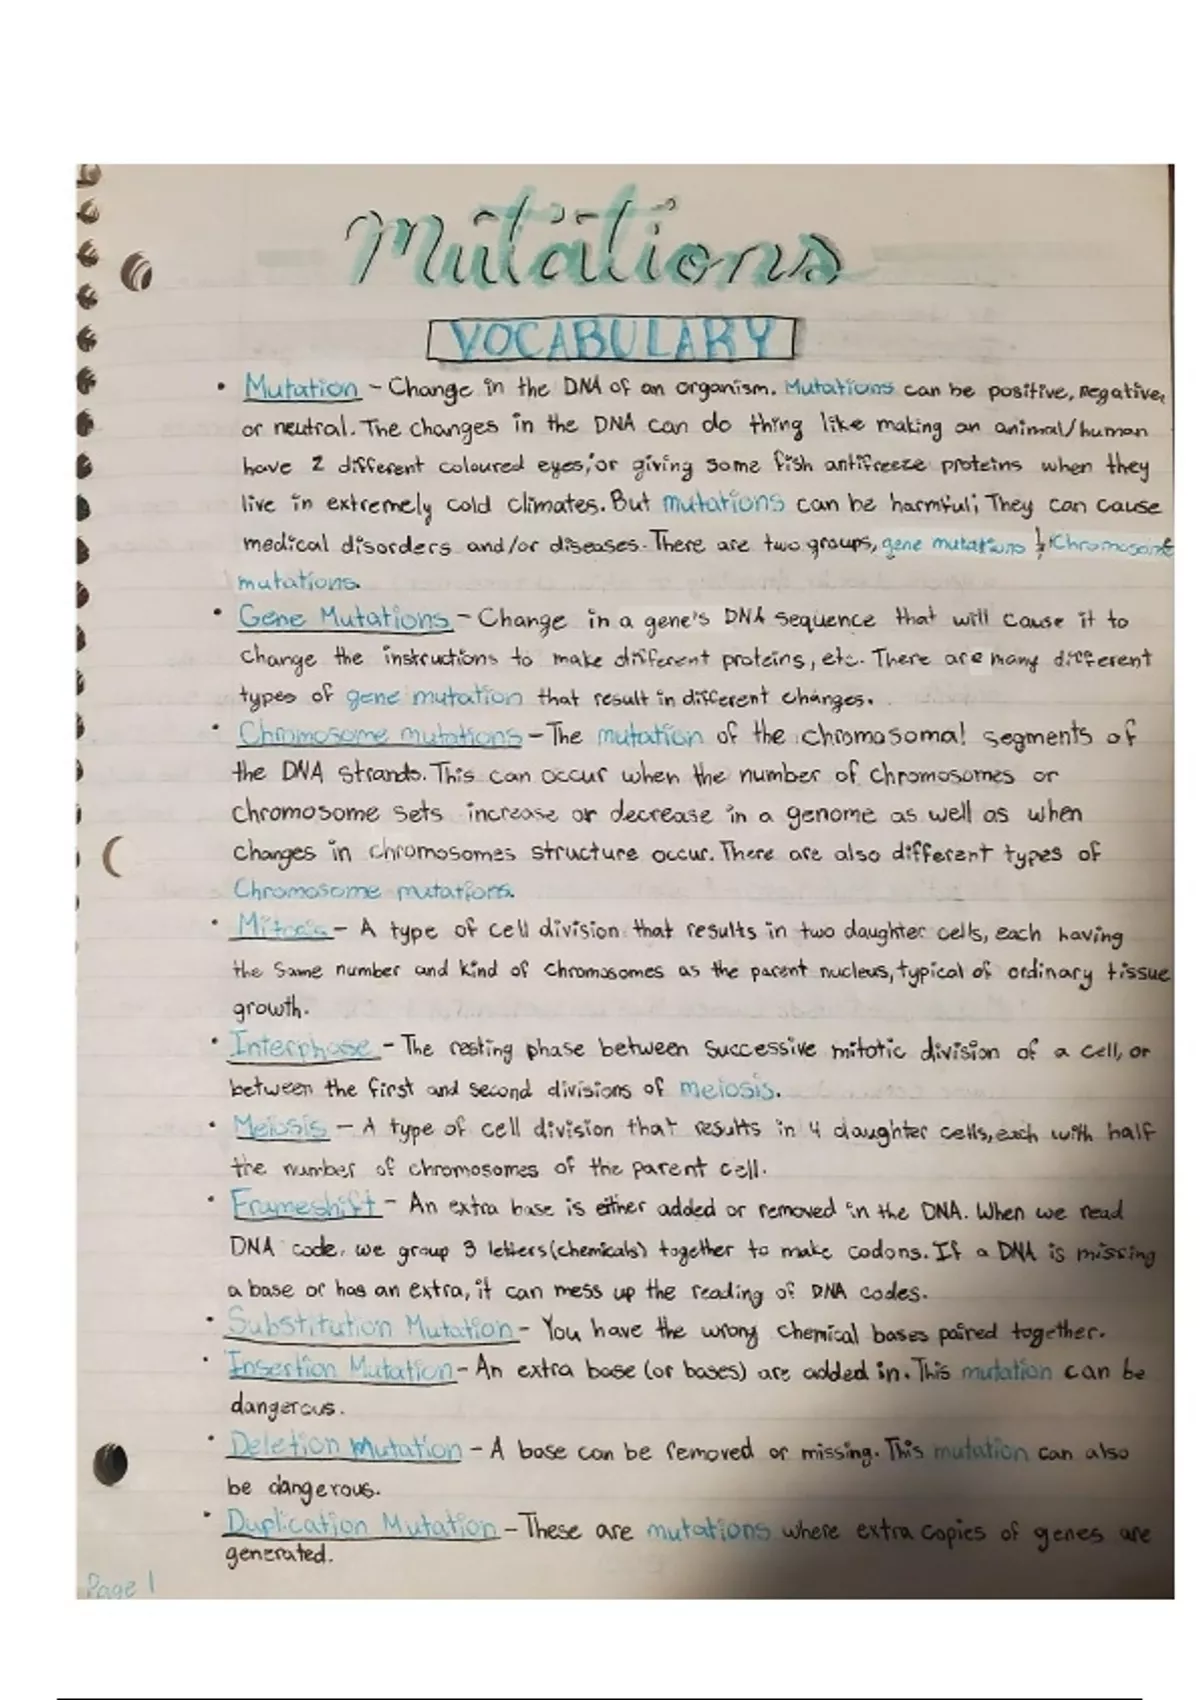 Mutations
VOCABULARY
• Mutation - Change in the DNA of an organism. Mutations can be positive, negative,
or neutral. The changes in the DNA can do thing like making an animal/human
have 2 different coloured eyes, or giving some fish antifreeze proteins when they
live in extremely cold climates. But mutations can be harmful; They can cause
medical disorders and/or diseases. There are two groups, gene mutations & Chromosome
mutations.
• Gene Mutations - Change in a gene's DNA sequence that will cause it to
change the instructions to make different proteins, etc. There are many different
types of gene mutation that result in different changes.
• Chromosome mutations - The mutation of the chromosomal segments of
the DNA strands. This can occur when the number of chromosomes or
chromosome sets increase or decrease in a genome as well as when
changes in chromosomes structure occur. There are also different types of
Chromosome mutations.
• Mitosis - A type of cell division that results in two daughter cells, each having
the same number and kind of chromosomes as the parent nucleus, typical of ordinary tissue
growth.
• Interphase - The resting phase between successive mitotic division of a cell, or
between the first and second divisions of meiosis.
• Meiosis - A type of cell division that results in 4 daughter cells, each with half
the number of chromosomes of the parent cell.
• Frameshift - An extra base is either added or removed in the DNA. When we read
DNA code, we group 3 letters (chemicals) together to make codons. If a DNA is missing
a base or has an extra, it can mess up the reading of DNA codes.
• Substitution Mutation - You have the wrong chemical bases paired together.
• Insertion Mutation - An extra base (or bases) are added in. This mutation can be
dangerous.
• Deletion Mutation - A base can be removed or missing. This mutation can also
be dangerous.
• Duplication Mutation - These are mutations where extra copies of genes are
generated.
Page 1